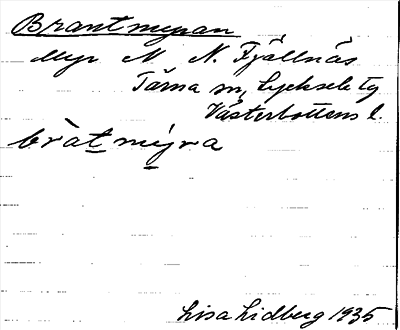 Brantmyran
Myr N N. Fjällnäs
Tärna sn, Lycksele tg
Västerbottens l.
bràt mýra
Lisa Lidberg 1935